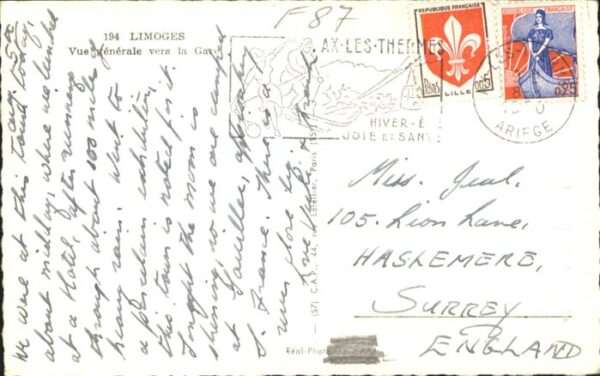 F 87
194 LIMOGES
Vue générale vers la Gare
AX-LES-THERMES
HIVER-E
JOIE ET SANT
REPUBLIQUE FRANÇAISE
LILLE
0,05
0,25
ARIEGE
Tues. 5.50
We were at this town today,
about midday, where we lunched
at a Hotel, after running
through about 100 miles of
heavy rain. Went to
a porcelain exhibition,
this town is noted for it.
Tonight the moon is
shining, so we are camped
at
S. France. There is a
river close by.
Love
Miss. Jeal.
105. Lion Lane,
HASLEMERE,
SURREY
ENGLAND
Réal-Photo